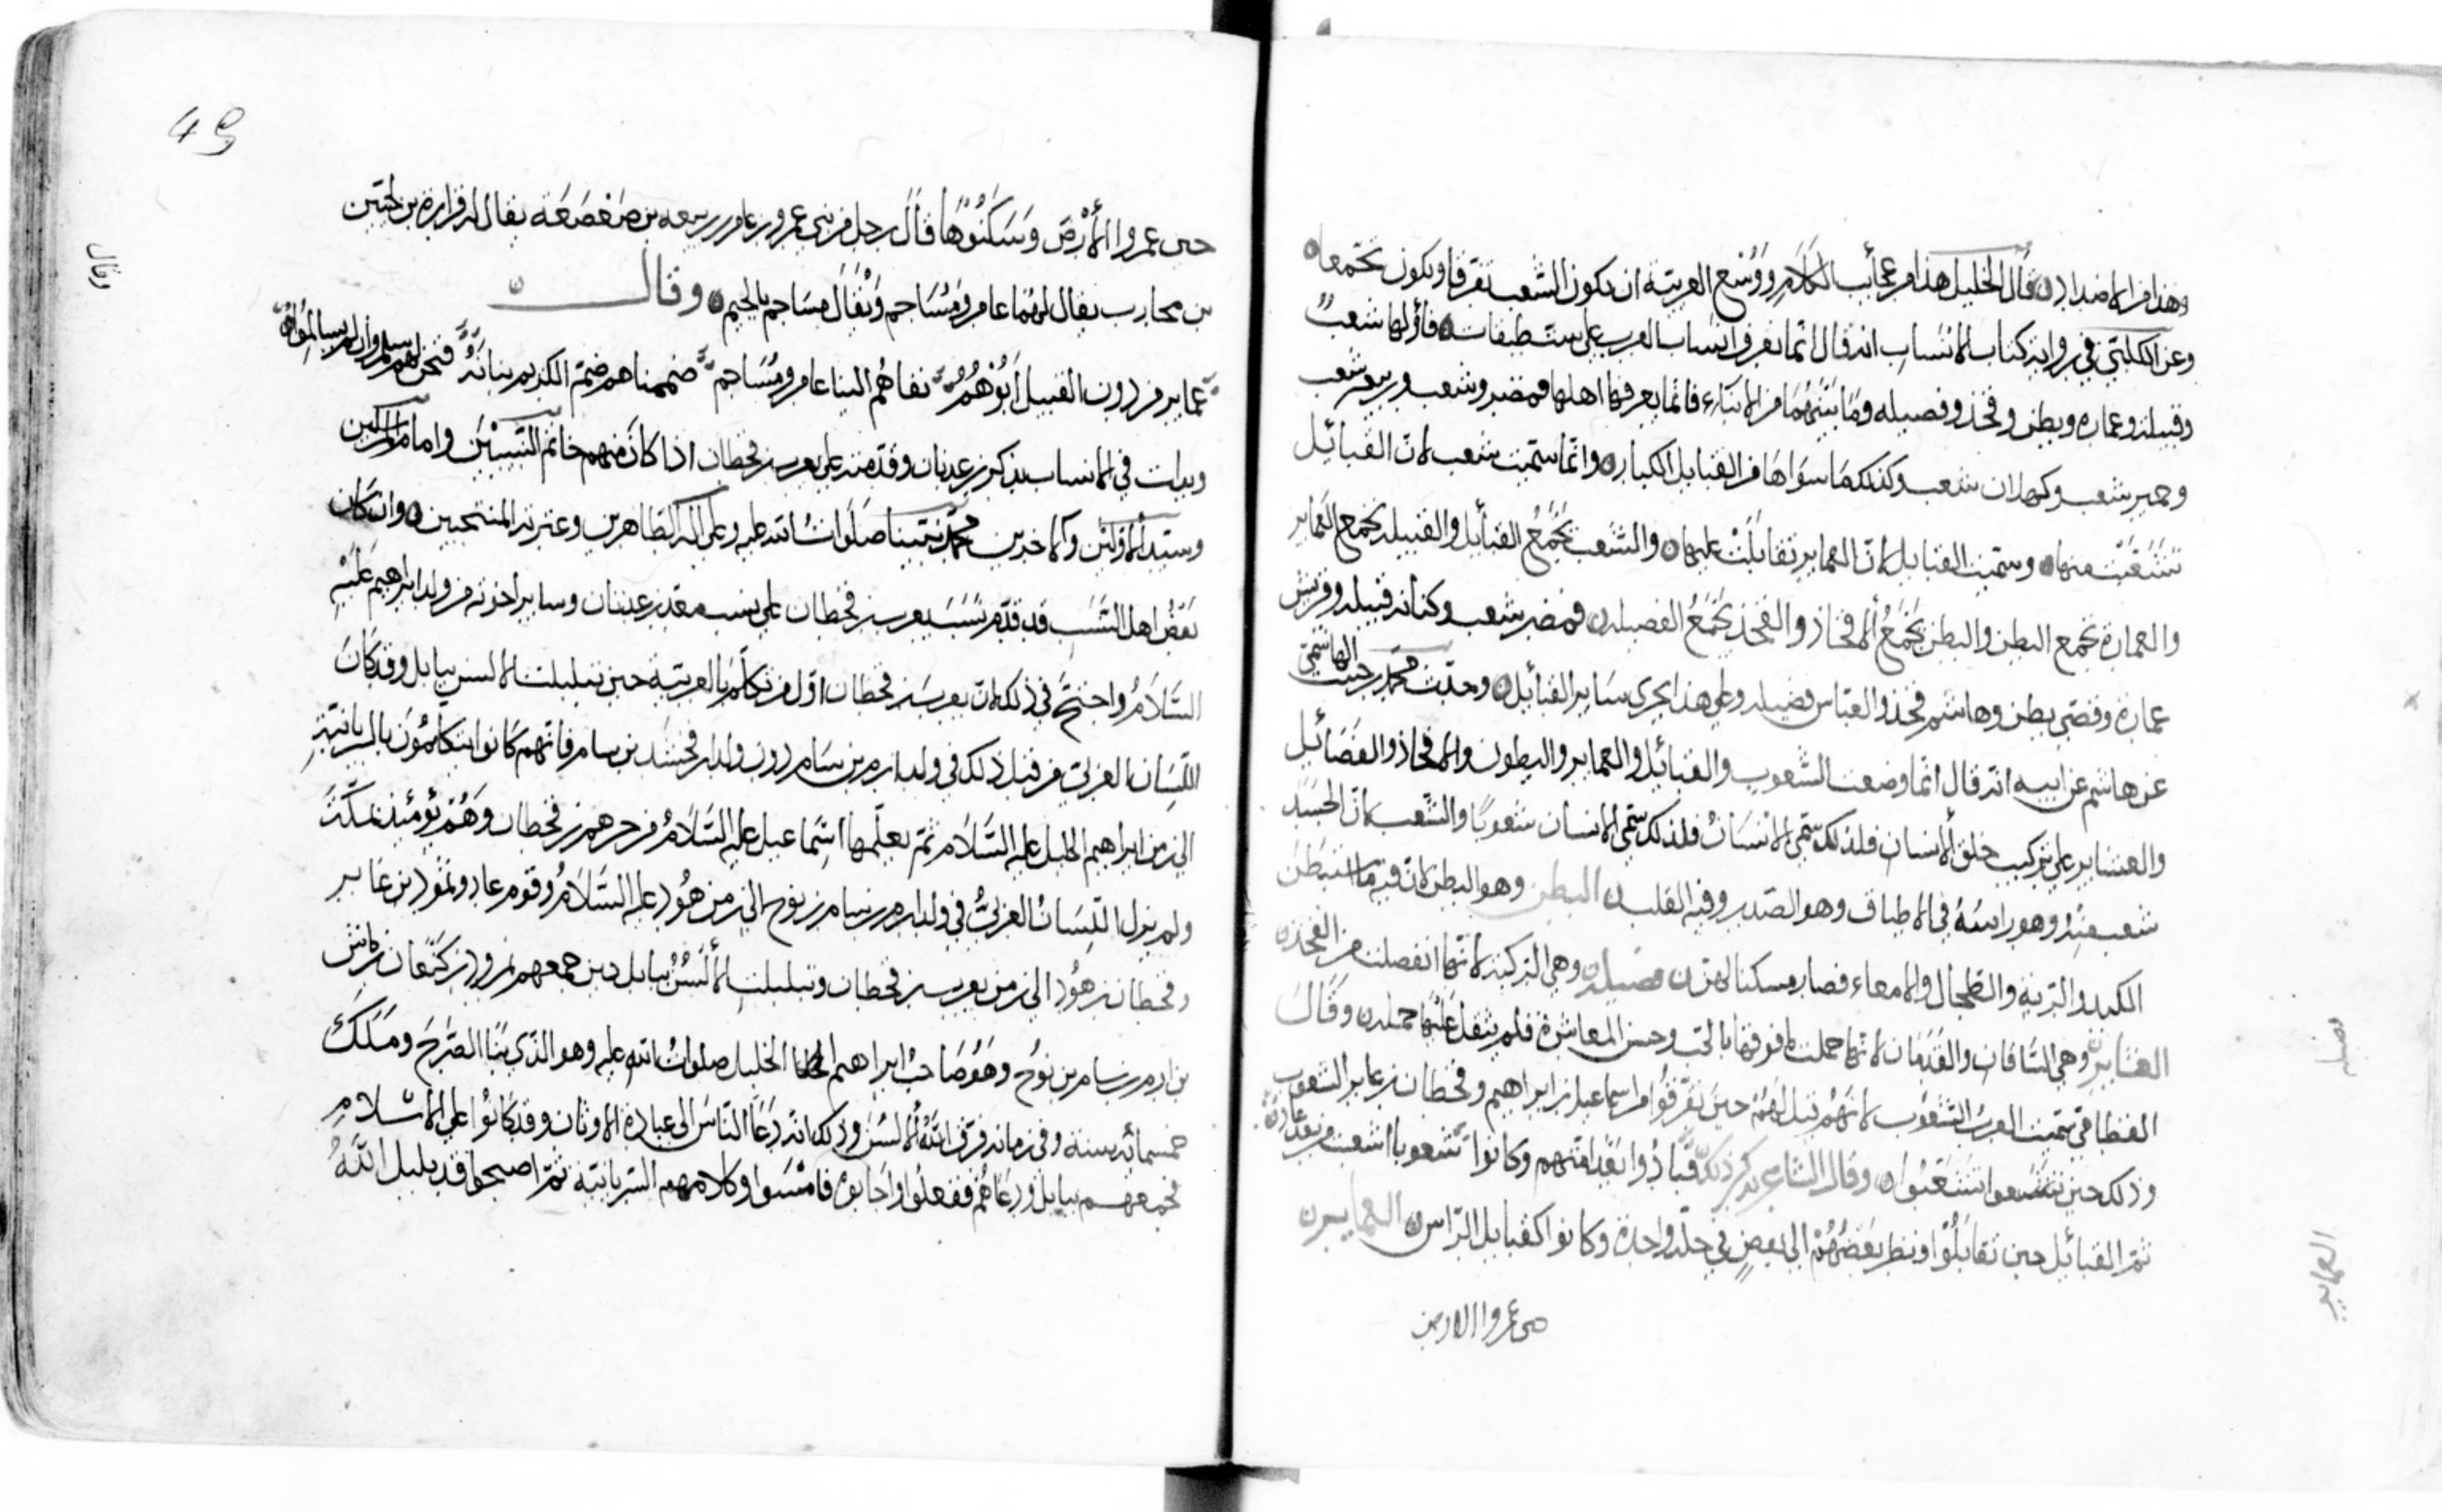 وهذا من الاضداد ه قال الخليل هذا من عجائب الكلام ووسع العربية ان يكون الشعب تفرقا ويكون تجمعا ه
وعن الكلبي في رواية كتاب الانساب انه قال انما تعرف انساب العرب على ست طبقات ه فأولها شعب
وقبيلة وعمارة وبطن وفخذ وفصيله وما بينهما من الاباء فانما يعرفها اهلها فمضر شعب وربيعة شعب
وحمير شعب وكهلان شعب وكذلك ما سواها من القبايل الكبار ه وانما سميت شعب لان القبائل
تشعبت منها ه وسميت القبايل لان العماير تقابلت عليها ه والشعب يجمع القبايل والقبيلة تجمع العماير
والعمارة تجمع البطن والبطن يجمع الافخاذ والفخذ يجمع الفصيلة ه فمضر شعب وكنانه قبيله وقريش
عمارة وقصي بطن وهاشم فخذ والعباس فصيله وعلى هذا يجرى ساير القبائل ه وحدث محمد بن حبيب الهاشمي
عن هاشم عن ابيه انه قال انما وضعت الشعوب والقبائل والعماير والبطون والافخاذ والفصائل
والعشاير على تركيب خلق الانسان فلذلك سمي الانسان فلذلك سمي الانسان شعوبا والشعب لان الجسد
شعب منه وهو راسه في الاطباق وهو الصدر وفيه القلب ه البطن وهو البطن لان فيه ما استبطن
الكبد والرية والطحال والامعاء فصار مسكنا لهن ه فصيلة ه وهي الركبة لانها انفصلت من الفخذ ه
العشاير ه وهي الساقان والقدمان لانها حملت ما فوقها بالحب وحسن المعاشرة فلم يثقل عليها حمله ه وقال
القطامي سميت العرب الشعوب لانهم قيل لهم حين تفرقوا من اسماعيل بن ابراهيم وقحطان بن عابر الشعوب
وذلك حين تشعبوا ه وقال الشاعر يذكر ذلك فبادوا بعد امتهم وكانوا شعوبا اشعبت من بعد عاد
ثم القبائل حين تقابلوا ونظر بعضهم الى بعض في حلة واحدة وكانوا كقبايل الراس ه العماير ه
حين عمروا الارض
فصيله
العماير
49
حين عمروا الأرض وسكنوها قال رجل من بني عمرو بن عامر بن ربيعه بن صعصعة يقال له قرارة بن
بن محارب يقال لهما عامر ومساحم ويقال مساجم بالجيم ه وقال ه
عماير من دون القبيل ابوهم نفاهم الينا عامر ومساحم ضممناهم ضم الكريم بنانه فنحن لهم
وبدات في الانساب بذكر بن عدنان وقدمته على يعرب بن قحطان اذا كان منهم خاتم النبيين وامام المرسلين
وسيد الاولين والاخرين محمد نبينا صلوات الله عليه وعلى اله الطاهرين وعترته المنتجبين ه وان كان
بعض اهل النسب قد قدم نسب يعرب بن قحطان على نسب معد بن عدنان وساير اخوته من ولد ابراهيم عليه
السلام واحتج في ذلك ان يعرب بن قحطان اول من تكلم بالعربية حين تبلبلت الالسن ببابل وقد كان
اللسان العربي من قبل ذلك في ولد ارم بن سام دون ولد ارفخشد بن سام فانهم كانوا يتكلمون بالسريانية
الى زمن ابراهيم الخليل عليه السلام ثم تعلمها اسماعيل عليه السلام من جرهم بن قحطان وهم يومئذ بمكة
ولم يزل اللسان العربي في ولد ارم بن سام بن نوح الى زمن هود عليه السلام وقوم عاد وثمود بن عابر
وقحطان بن هود الى زمن يعرب بن قحطان وتبلبلت الألسن ببابل حين جمعهم نمرود بن كنعان بن كوش
بن ارم بن سام بن نوح وهو صاحب ابراهيم الخليل صلوات الله عليه وهو الذي بنا الصرح وملك
خمسمائة سنة وفي زمانه فرق الله الالسن وذلك انه دعا الناس الى عبادة الاوثان وقد كانوا على الاسلام
فجمعهم ببابل ودعاهم ففعلوا واجابوه فامسوا وكلامهم السريانية ثم اصبحوا قد بلبل الله
وقال